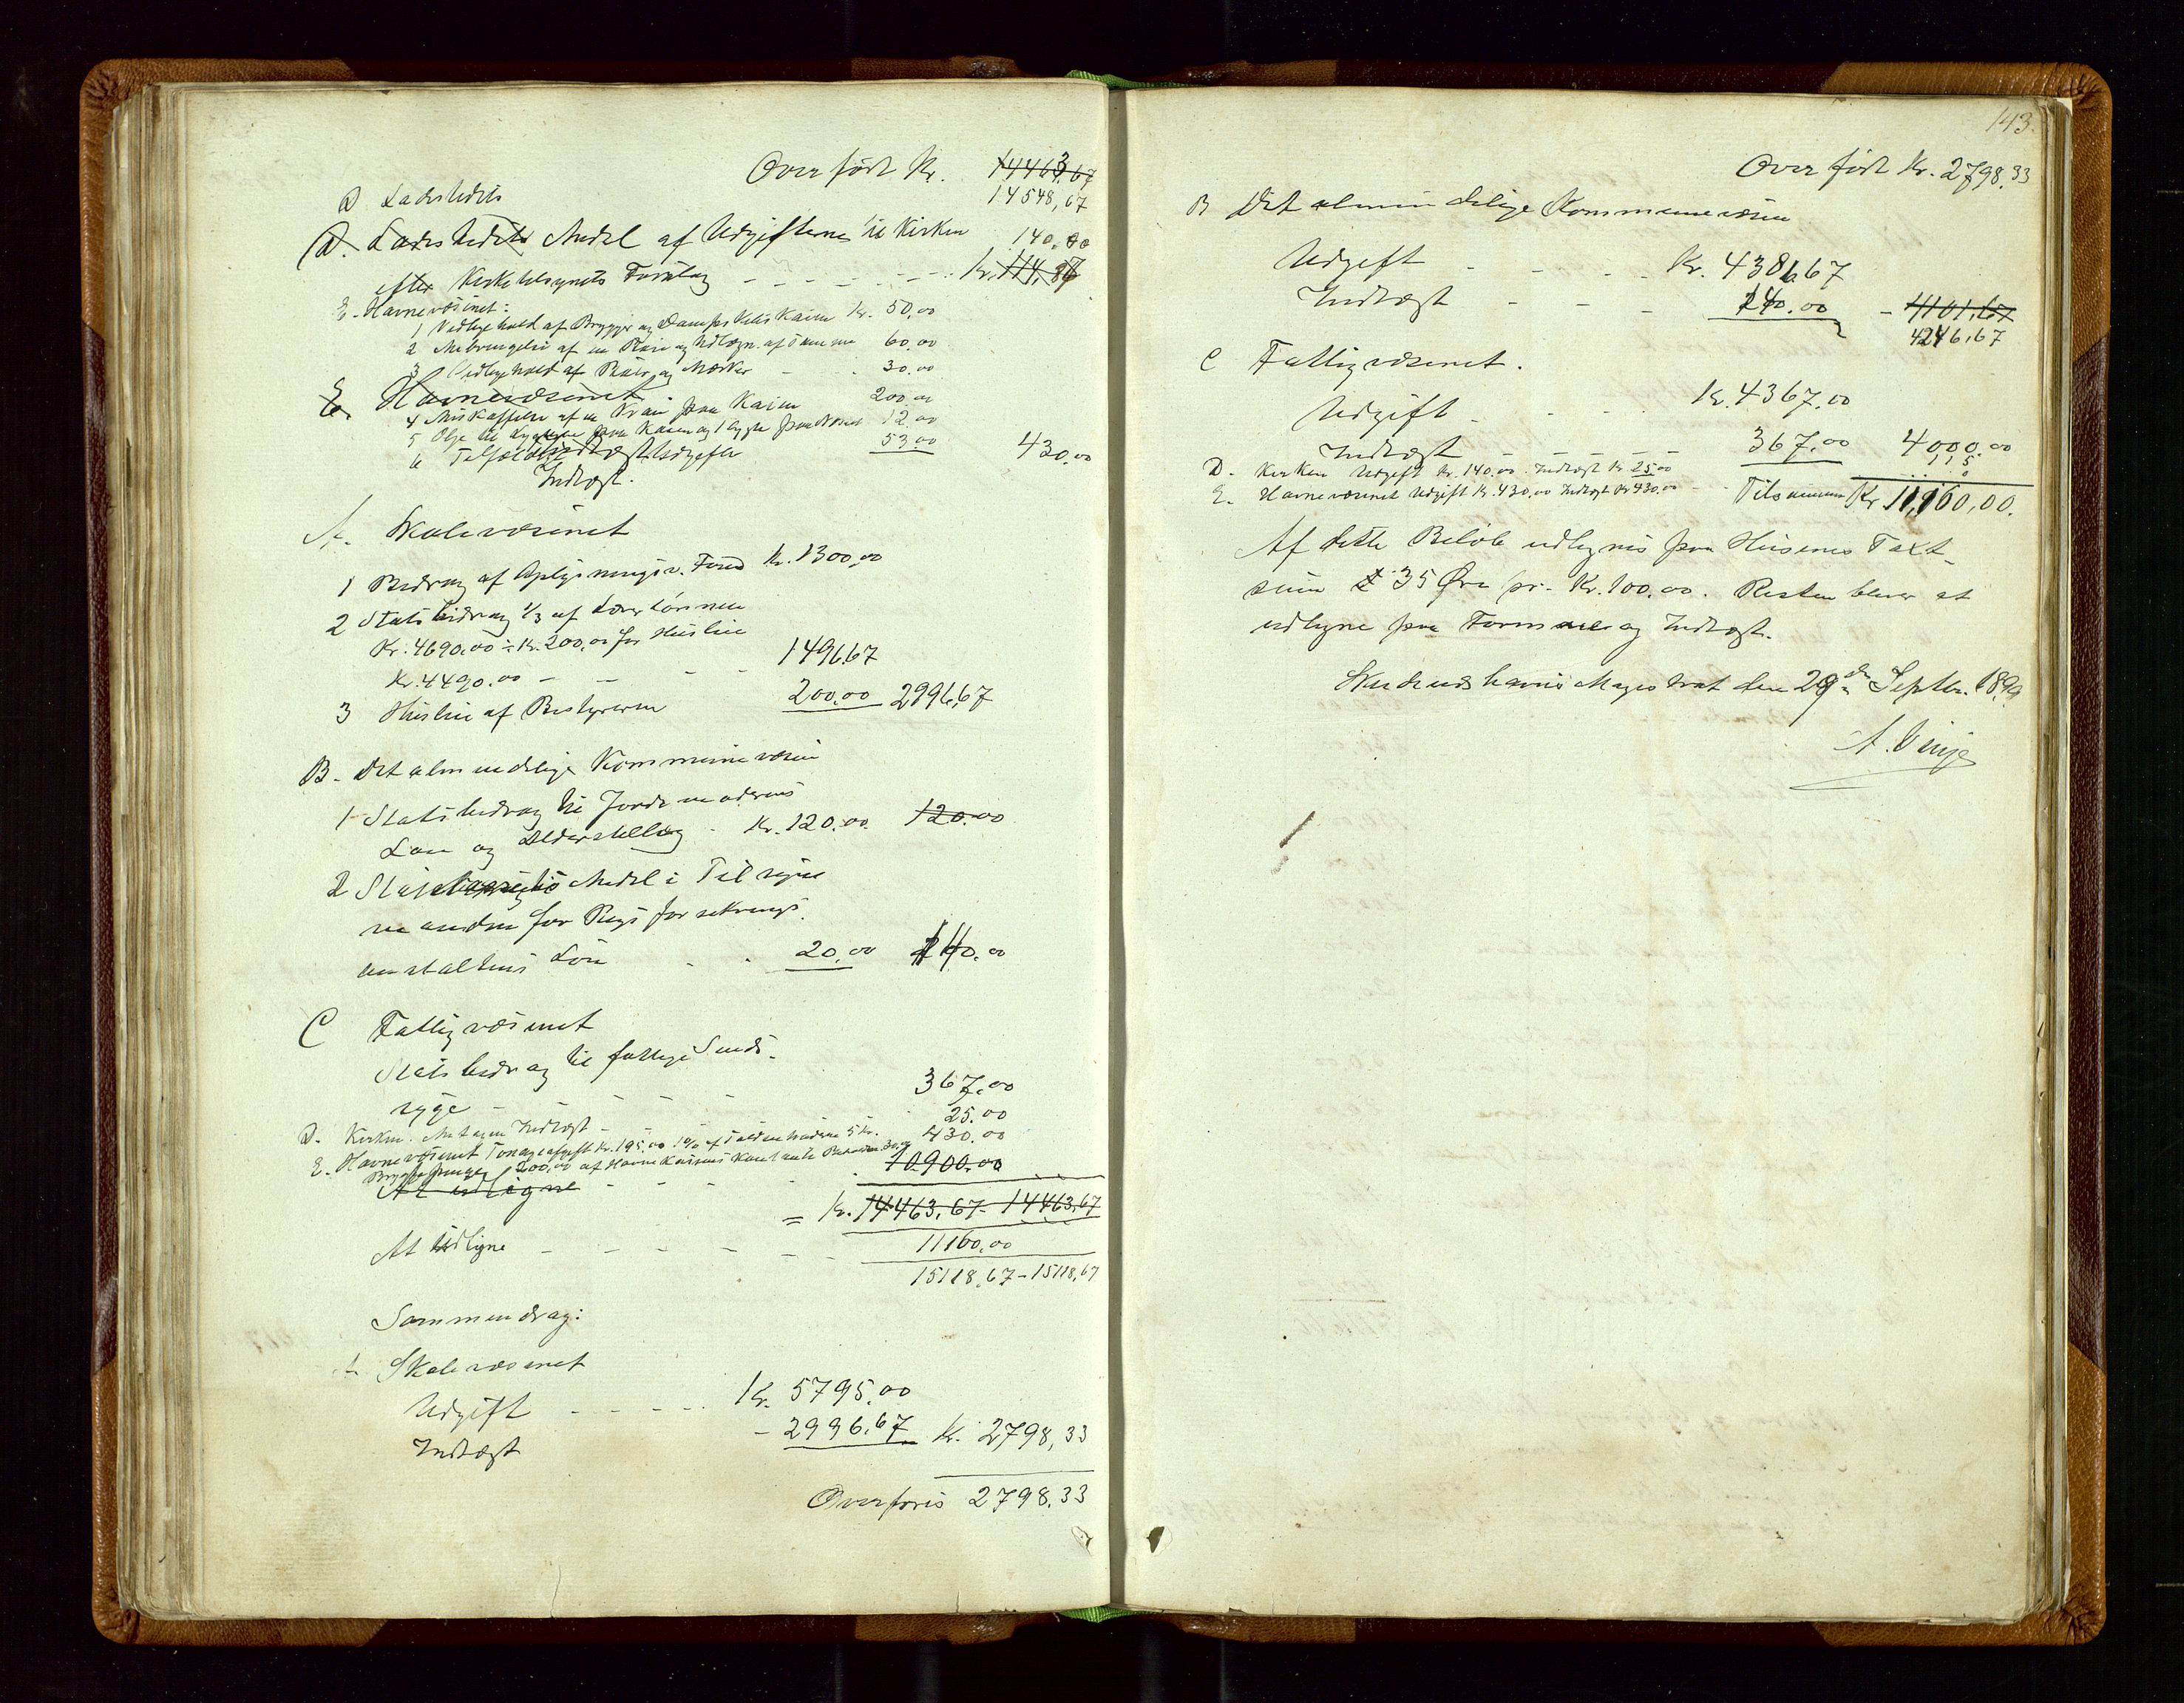 Overført Kr. 14463,67
14548,67
D Ladestedets
D. Ladestedets Andel af Udgifterne til Kirken 140.00
efter Kirketilsynets Forslag - - - - - - Kr. 114,87
E. Havnevæsenet:
1 Vedligehold af Brygger og Dampskibskaien Kr. 50,00
2 Anbringelse af en Bøie og Udlægn. af samme 60.00
3 Vedligehold af Bøier og Mærker - - 30.00
E. Havnevæsenet
4 Anskaffelse af en Kran paa Kaien 200.00
5 Olje til Lygterne paa Kaien og 1 Lygte paa 12.00
6 Tilfældige Udgifter 53.00 430.00
Indtægt.
A. Skolevæsenet
1 Bidrag af Oplysningsv. Fond Kr. 1300,00
2 Statsbidrag 1/3 af Lærerlønnen
Kr. 4690.00 ÷ Kr. 200,00 for Husleie
Kr. 4490.00 - - - - 1496.67
3 Husleie af Bestyreren 200.00 2996,67
B. Det almindelige Kommunevæsen
1 Statsbidrag til Jordemoderens
Løn og Alderstillæg - Kr. 120.00. 120.00
2 Andel i Tilsyns
manden for Rigsforsikrings
anstaltens Løn - - 20.00 140.00
C Fattigvæsenet
Statsbidrag til fattige Sinds-
syge - - - - - 367.00
D. Kirken. Antagen Indtægt - - - 25.00
E. Havnevæsenet Tonageafgift Kr. 195,00 430.00
Bryggepenge 200,00 af Havnekassens kontante
At udligne - - - - 10900.00
= Kr. 14463,67 - 14463,67
At Udligne - - - - - - 11160,00
15118,67 - 15118,67
Sammendrag:
A. Skolevæsenet
Udgift - - - - - Kr. 5795.00
Indtægt - 2996.67 Kr. 2798,33
Overføres 2798.33
143.
Overført Kr. 2798.33
B Det almindelige Kommunevæsen
Udgift - - - - Kr. 4386,67
Indtægt - - - 140.00 - 4101,67
4246,67
C Fattigvæsenet.
Udgift - - - - Kr. 4367.00
Indtægt - - 367.00 4000.00
D. Kirken Udgift Kr. 140.00. Indtægt Kr 25.00 115.
E. Havnevæsenet Udgift Kr. 430,00 Indtægt Kr 430,00 - - 0
Tilsammen Kr 11,160,00.
Af dette Beløb udlignes paa Husenes Taxt-
sum 35 Øre pr. Kr. 100.00. Resten bliver at
udligne paa Formue og Indtægt.
Skudeneshavns Magistrat den 29de Septbr. 1899
A. Vinje